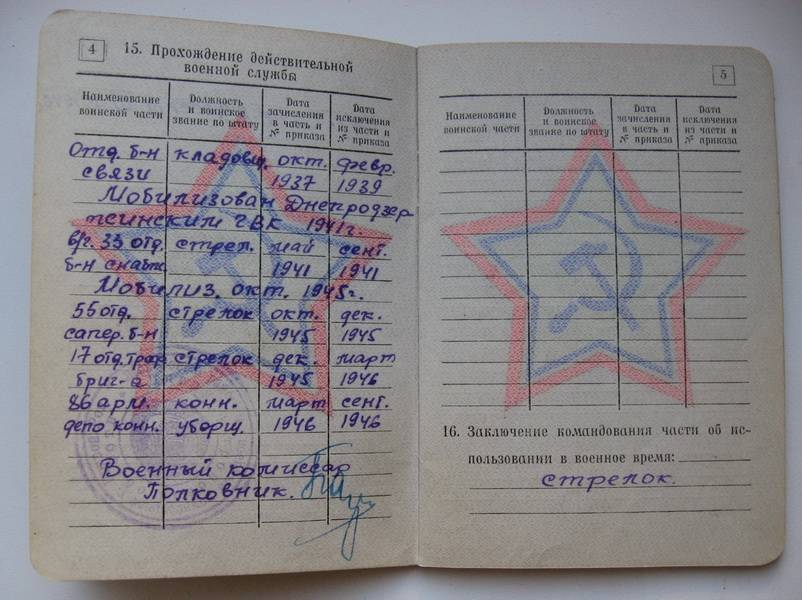 4
15. Прохождение действительной
военной службы
Наименование воинской части
Должность и воинское звание по штату
Дата зачисления в часть и № приказа
Дата исключения из части и № приказа
Отд. б-н кладовщ. окт. февр.
связи 1937 1939
Мобилизован Днепродзер-
жинским ГВК 1941г.
в/ч. 33 отд. стрел. май сент.
б-н снабж. 1941 1941
Мобилиз. окт. 1945г.
55 отд. стрелок окт. дек.
сапер. б-н 1945 1945
17 отд. троф. стрелок дек. март
бриг-а 1945 1946
86 арм. конн. март сент.
депо конн. уборщ. 1946 1946
Военный комиссар
Полковник.
5
Наименование воинской части
Должность и воинское звание по штату
Дата зачисления в часть и № приказа
Дата исключения из части и № приказа
16. Заключение командования части об ис-
пользовании в военное время:
стрелок.